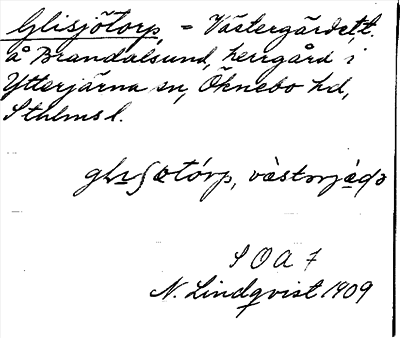 Glisjötorp, = Västergärdet, t.
å Brandalsund, herrgård i
Ytterjärna sn, Öknebo hd,
Sthlms l.
SOA 7
N. Lindqvist 1909